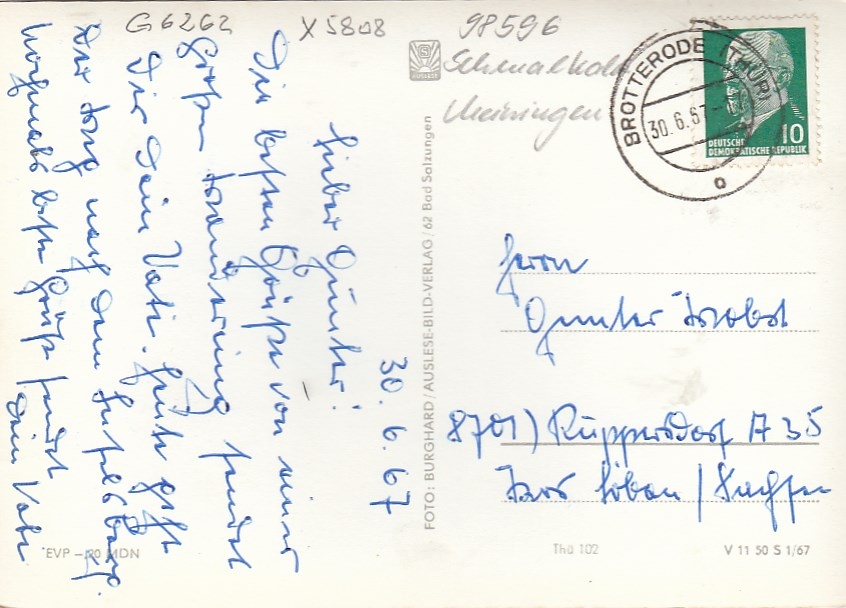 G6262 X5808 98596
Schmalkalden
Meiningen
BROTTERODE (THÜR)
30.6.67
a
10
DEUTSCHE
DEMOKRATISCHE REPUBLIK
30. 6. 67
Lieber Günter!
Die besten Grüße von einer
großen Wanderung sendet
Dir Dein Vati. Heute geht
der Weg nach dem Inselsberg.
Nochmals beste Grüße sendet
Dein Vati
FOTO: BURGHARD / AUSLESE-BILD-VERLAG / 62 Bad Salzungen
Herrn
Gunter Wobst
8701) Ruppersdorf A 35
Krs Löbau / Sachsen
EVP – 20 MDN
Thü 102
V 11 50 S 1/67